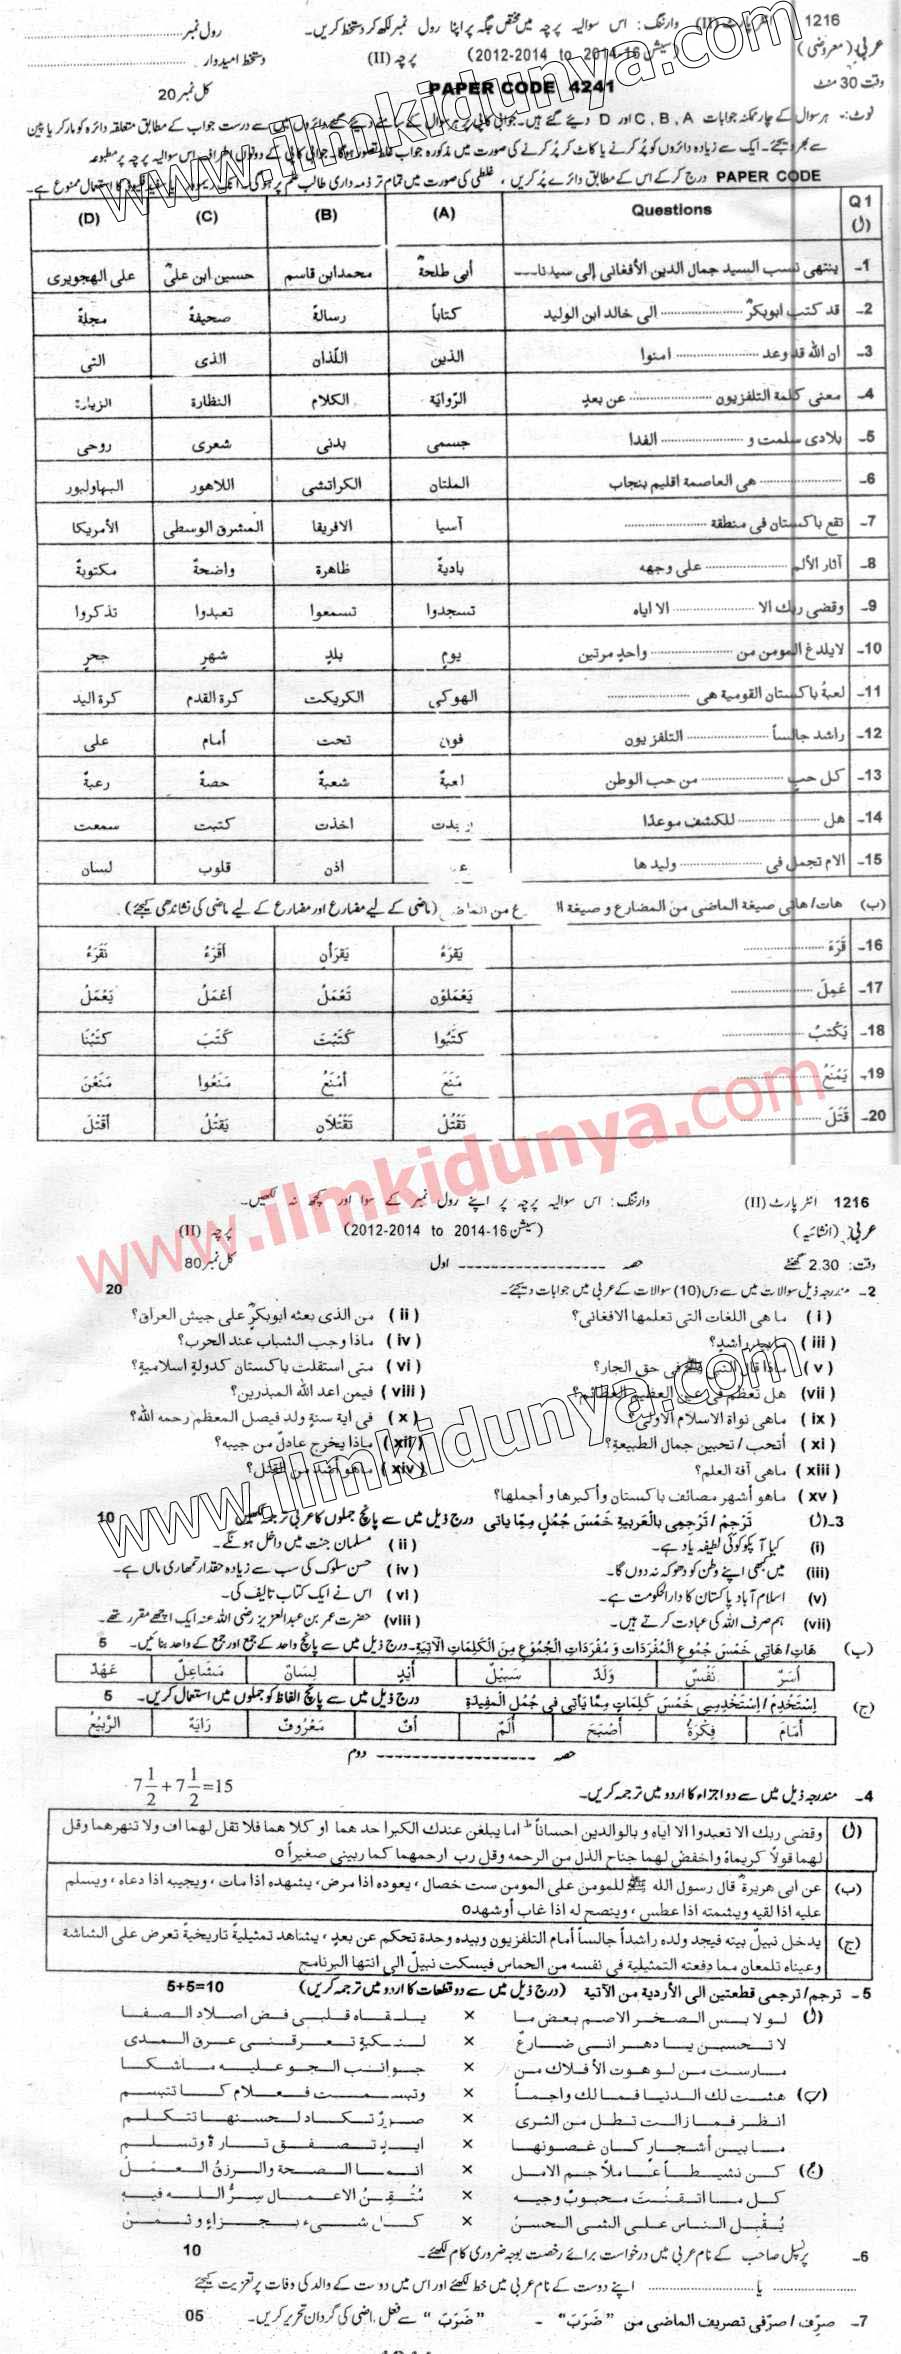 1216 انٹر پارٹ (II) وارننگ: اس سوالیہ پرچہ میں مختص جگہ پر اپنا رول نمبر لکھ کر دستخط کریں۔ رول نمبر
عربی (معروضی) (سیشن 16-2014 to 2012-2014) پرچہ (II) دستخط امیدوار
وقت 30 منٹ PAPER CODE 4241 کل نمبر 20
نوٹ:- ہر سوال کے چار ممکنہ جوابات A, B, C اور D دیئے گئے ہیں۔ جوابی کاپی پر ہر سوال کے سامنے دیئے گئے دائروں میں سے درست جواب کے مطابق متعلقہ دائرہ کو مارکر یا پین
سے بھر دیجئے۔ ایک سے زیادہ دائروں کو پُر کرنے یا کاٹ کر پُر کرنے کی صورت میں مذکورہ جواب غلط تصور ہوگا۔ جوابی کاپی کے دونوں اطراف اس سوالیہ پرچہ پر مطبوعہ
PAPER CODE درج کر کے اس کے مطابق دائرے پُر کریں، غلطی کی صورت میں تمام تر ذمہ داری طالب علم پر ہوگی۔ کا استعمال ممنوع ہے۔
Q 1 (ل) Questions (A) (B) (C) (D)
1- ينتهي نسب السيد جمال الدين الأفغاني إلى سيدنا---- أبي طلحةؓ محمد ابن قاسم حسين ابن عليؓ على الهجويرى
2- قد كتب ابوبكرؓ ........ الى خالد ابن الوليد كتاباً رسالةً صحيفةً مجلةً
3- ان الله قد وعد ........ امنوا الذين اللّذان الذى التى
4- معنى كلمة التلفزيون ........ عن بعدٍ الرّواية الكلام النظارة الزيارة
5- بلادى سلمت و ........ الفدا جسمى بدنى شعرى روحى
6- ........ هى العاصمة اقليم بنجاب الملتان الكراتشى اللاهور البهاولبور
7- تقع باكستان فى منطقة ........ آسيا الافريقا المشرق الوسطى الأمريكا
8- آثار الألم ........ على وجهه باديةً ظاهرة واضحةً مكتوبةً
9- وقضى ربك الا ........ الا اياه تسجدوا تسمعوا تعبدوا تذكروا
10- لايلدغ المومن من ........ واحدٍ مرتين يومٍ بلدٍ شهرٍ جحرٍ
11- لعبةُ باكستان القومية هى ........ الهوكى الكريكت كرة القدم كرة اليد
12- راشد جالساً ........ التلفزيون فوق تحت أمام على
13- كل حبٍ ........ من حب الوطن لعبةٌ شعبةٌ حصةٌ رعبةٌ
14- هل ........ للكشف موعدًا اخذت كتبت سمعت
15- الام تجمل فى ........ وليدها اذن قلوب لسان
(ب) هات/هاتى صيغة الماضى من المضارع و صيغة المضارع من الماضى (ماضی کے لیے مضارع اور مضارع کے لیے ماضی کی نشاندہی کیجئے)
16- قَرَءَ ........ يَقرَءُ يَقرَأنِ أقَرَءُ نَقرَءُ
17- عَمِلَ ........ يَعْمَلُوْن تَعْمَلُ أعْمَلُ يَعْمَلُ
18- يَكْتبُ ........ كتَبُوا كَتَبْتَ كَتَبَ كتَبْنَا
19- يَمْنَعُ ........ مَنَعَ أمْنَعُ مَنَعُوا مَنَعْنَ
20- قَتَلَ ........ تَقْتُلُ تَقْتُلَانِ يَقتُلُ أقْتُلَ
1216 انٹر پارٹ (II) وارننگ: اس سوالیہ پرچہ پر اپنے رول نمبر کے سوا اور کچھ نہ لکھیں۔
عربی (انشائیہ) (سیشن 16-2014 to 2012-2014) پرچہ (II)
وقت: 2.30 گھنٹے حصہ ---------------- اول کل نمبر 80
2- مندرجہ ذیل سوالات میں سے دس (10) سوالات کے عربی میں جوابات دیجئے۔ 20
(i) ماهى اللغات التى تعلمها الافغانى؟ (ii) من الذى بعثه ابوبكرؓ على جيش العراق؟
(iii) ماييد راشد؟ (iv) ماذا وجب الشباب عند الحرب؟
(v) ماذا قال النبى ﷺ فى حق الجار؟ (vi) متى استقلت باكستان كدولةٍ اسلاميةٍ؟
(vii) هل تعظم فى عين العظيم العظائم؟ (viii) فيمن اعد الله المبذرين؟
(ix) ماهى نواة الاسلام الاولى؟ (x) فى اية سنةٍ ولد فيصل المعظم رحمه الله؟
(xi) أتحب/تحبين جمال الطبيعةِ؟ (xii) ماذا يخرج عادلٌ من جيبه؟
(xiii) ماهى آفة العلم؟ (xiv) ماهو أشد من القتل؟
(xv) ماهو أشهر مصائف باكستان وأكبرها و أجملها؟
3-(ل) تَرْجِمْ/تَرْجِمِى بِالْعَربيةِ خَمْسَ جُمُلٍ مِمَّا ياتى درج ذیل میں سے پانچ جملوں کا عربی ترجمہ لکھئے 10
(i) کیا آپکو کوئی لطیفہ یاد ہے۔ (ii) مسلمان جنت میں داخل ہونگے۔
(iii) میں کبھی اپنے وطن کو دھوکہ نہ دوں گا۔ (iv) حسن سلوک کی سب سے زیادہ حقدار تمھاری ماں ہے۔
(v) اسلام آباد پاکستان کا دارالحکومت ہے۔ (vi) اس نے ایک کتاب تالیف کی۔
(vii) ہم صرف اللہ کی عبادت کرتے ہیں۔ (viii) حضرت عمر بن عبدالعزیز رضی اللہ عنہ ایک اچھے مقرر تھے۔
(ب) هَاتِ/هَاتِى خَمْسَ جُمُوعِ الْمُفْرَدَاتِ وَ مُفْرَدَاتِ الْجُمُوْعِ مِنَ الْكَلِمَاتِ الْآتِيَةِ۔ درج ذیل میں سے پانچ واحد کے جمع اور جمع کے واحد بنائیں۔ 5
أسَرٌ نَفْسٌ وَلَدٌ سَبِيْلٌ أيْدٍ لِسَانٌ مَشَاعِلٌ عَهْدٌ
(ج) اِسْتَخْدِمْ/اِسْتَخْدِمِى خَمْسَ كَلِمَاتٍ مِمَّا يَاتِى فى جُمَلِ الْمفِيْدَةِ درج ذیل میں سے پانچ الفاظ کو جملوں میں استعمال کریں۔ 5
أمَامَ فِكْرَةٌ أصْبَحَ ألَمٌ أفٌ مَعْرُوفٌ رَايَةٌ الرَّبِيْعُ
حصہ ---------------- دوم
4- مندرجہ ذیل میں سے دو اجزاء کا اردو میں ترجمہ کریں۔ 7½+7½=15
(ل) وقضى ربك الا تعبدوا الا اياه و بالوالدين احساناً ط اما يبلغن عندك الكبرا حد هما او كلا هما فلا تقل لهما اف ولا تنهرهما وقل
لهما قولاً كريماهُ واخفض لهما جناح الذل من الرحمه وقل رب ارحمهما كما ربينى صغيراً o
(ب) عن ابى هريرةؓ قال رسول الله ﷺ للمومن على المومن ست خصال، يعوده اذا مرض، يشهده اذا مات، ويجيبه اذا دعاه، ويسلم
عليه اذا لقيه ويشمته اذا عطس، وينصح له اذا غاب أوشهدo
(ج) يدخل نبيلٌ بيته فيجد ولده راشداً جالساً أمام التلفزيون وبيده وحدة تحكم عن بعدٍ، يشاهد تمثيليةً تاريخيةً تعرض على الشاشة
وعيناه تلمعان مما دفعته التمثيلية فى نفسه من الحماس فيسكت نبيلٌ الى انتها البرنامج
5- ترجم/ترجمى قطعتين الى الأردية من الآتية (درج ذیل میں سے دو قطعات کا اردو میں ترجمہ کریں) 5+5=10
(ل) لو لا بس الصخر الاصم بعض ما × يلقاه قلبى فض اصلاد الصفا
لا تحسبن يا دهر انى ضارعٌ × لنكبةٍ تعرقنى عرق المدى
مارست من لو هوت الأفلاك من × جوانب الجو عليه ماشكا
(ب) هشت لك الدنيا فمالك واجماً × وتبسمت فعلام كاتتبسم
انظر فما زالت تطل من الثرى × صورٌ تكاد لحسنها تتكلم
ما بين أشجارٍ كان غصونها × ايدٍ تصفق تارةً وتسلم
(ج) كن نشيطاً عاملاً جم الامل × انما الصحة والرزق العمل
كل ما اتقنت محبوبٌ وجيه × مُتْقِنُ الاعمال سِرُّ الله فيه
يُقْبِل الناس على الشى الحسن × كل شىء بجزاءٍ وثمن
6- پرنسپل صاحب کے نام عربی میں درخواست برائے رخصت بوجہ ضروری کام لکھئے۔ 10
............ یا ............ اپنے دوست کے نام عربی میں خط لکھئے اور اس میں دوست کے والد کی وفات پر تعزیت کیجئے
7- صرِّف/صرِّفى تصريف الماضى من "ضَرَبَ" - "ضَرَبَ" سے فعل ماضی کی گردان تحریر کریں۔ 05
www.ilmkidunya.com
www.ilmkidunya.com
www.ilmkidunya.com